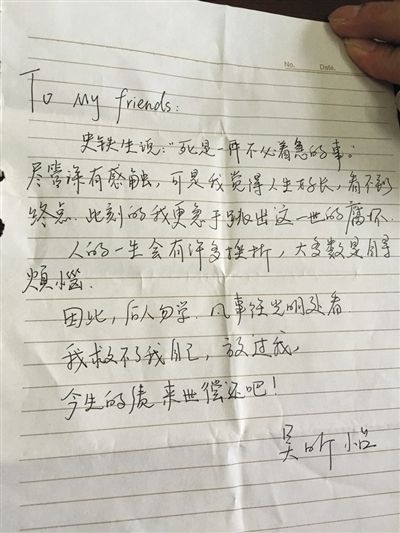 No.      Date.
To My friends:
史铁生说:“死是一件不必着急的事。”
尽管深有感触,可是我觉得人生好长,看不到
终点.此刻的我更急于跳出这一世的腐坏.
人的一生会有许多挫折,大多数是自寻
烦恼.
因此,后人勿学.凡事往光明处看.
我救不了我自己,放过我,
今生的债来世偿还吧!
吴昕怡